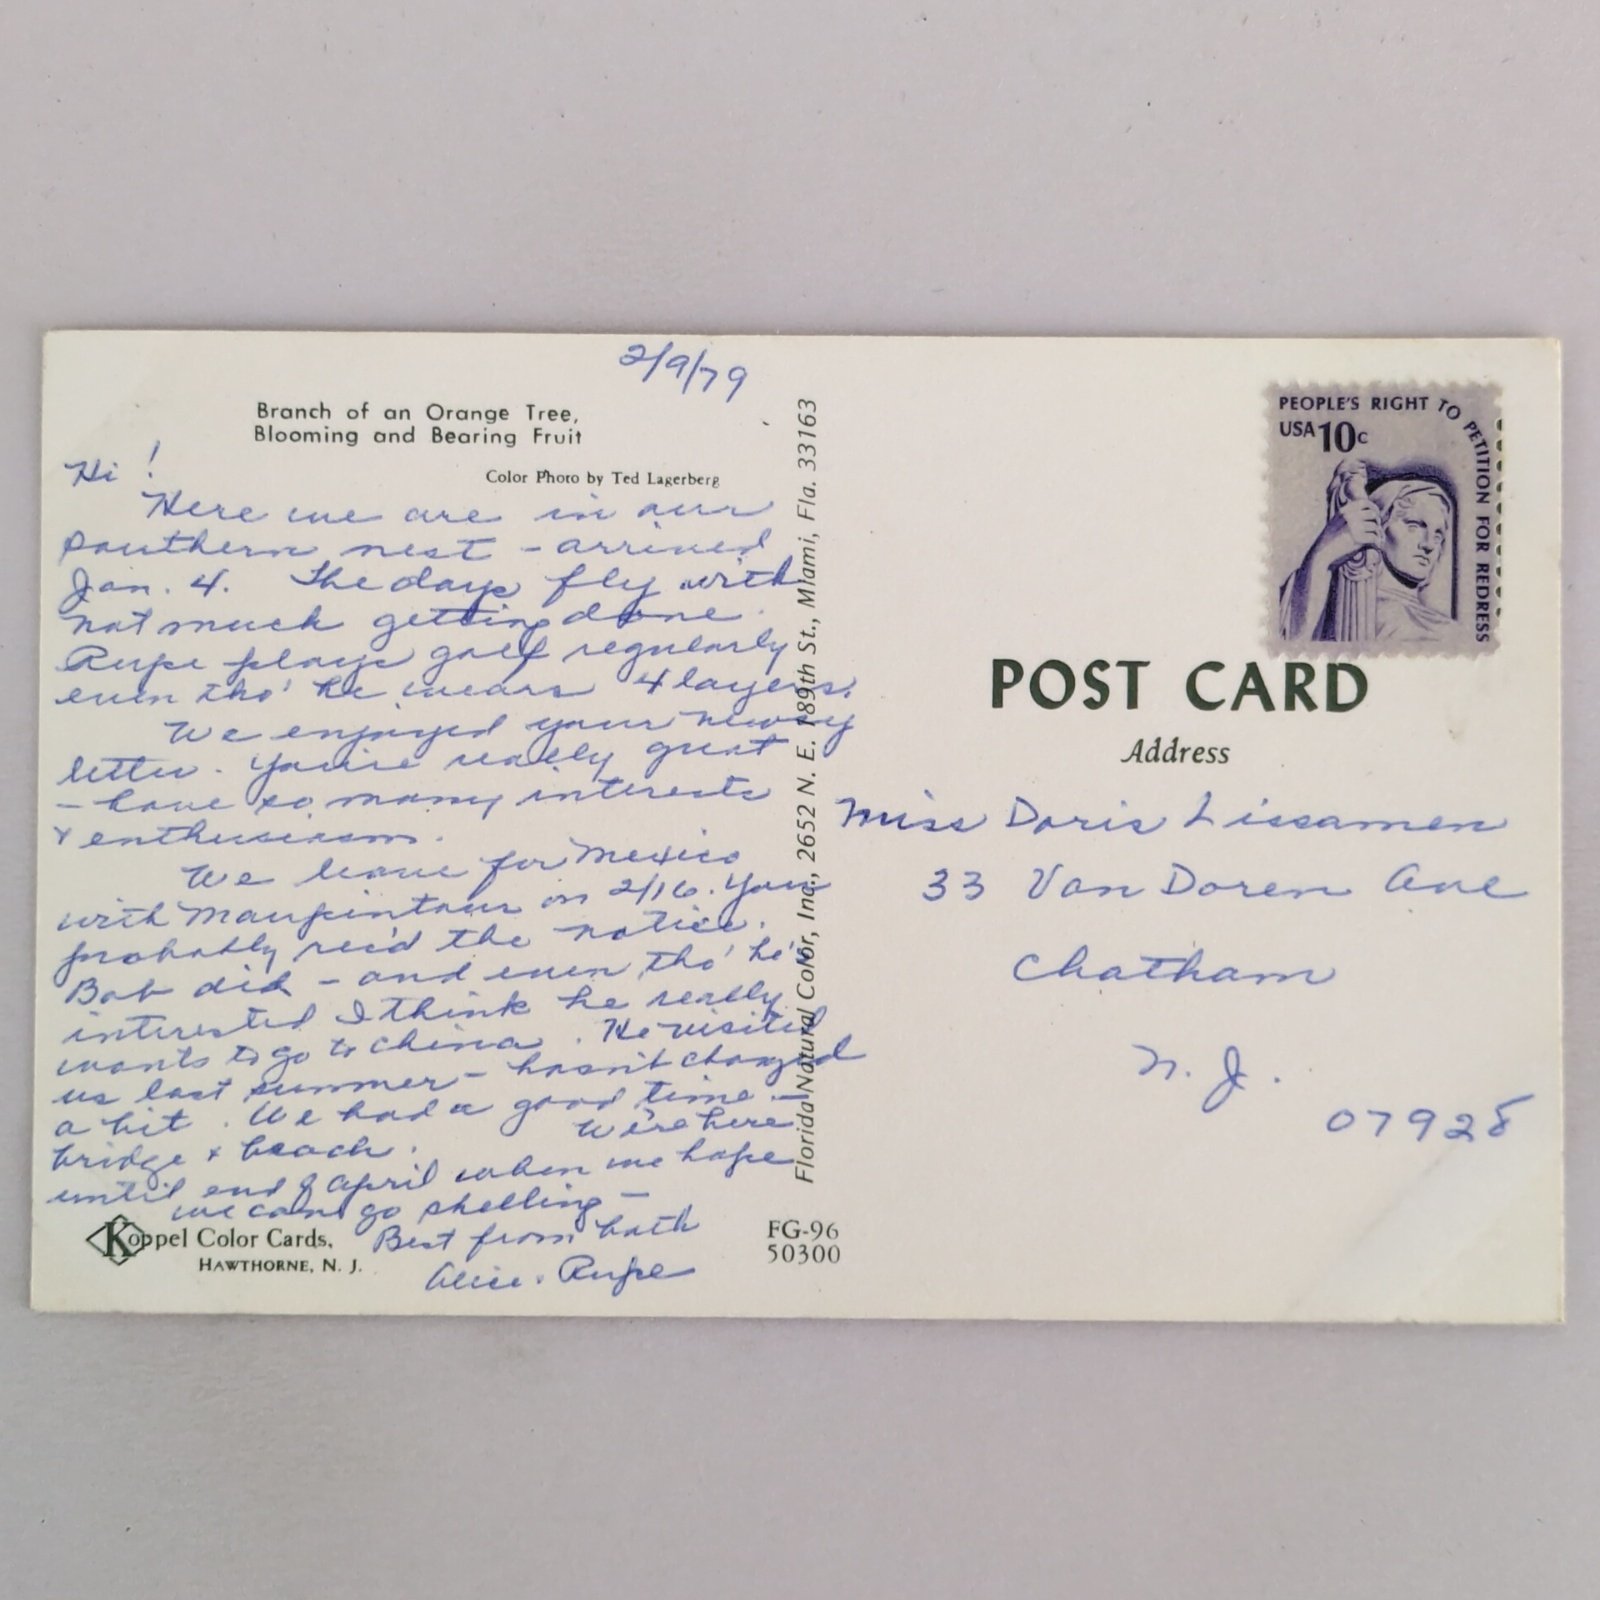 2/9/79
Branch of an Orange Tree,
Blooming and Bearing Fruit
Color Photo by Ted Lagerberg
Hi!
Here we are in our
southern nest – arrived
Jan. 4. The days fly with
not much getting done.
Rupe plays golf regularly
even tho' he wears 4 layers.
We enjoyed your newsy
letter. You're really great
– have so many interests
& enthusiasm.
We leave for Mexico
with Maupintour on 2/16. You
probably rec'd the notice.
Bob did – and even tho' he's
interested I think he really
wants to go to China. He visited
us last summer – hasn't changed
a bit. We had a good time –
bridge & beach. We're here
until end of April when we hope
we can go shelling –
Best from both
Alice & Rupe
Koppel Color Cards,
HAWTHORNE, N. J.
FG-96
50300
Florida Natural Color, Inc., 2652 N. E. 189th St., Miami, Fla. 33163
PEOPLE'S RIGHT TO PETITION FOR REDRESS
USA 10c
POST CARD
Address
Miss Doris Lissamen
33 Van Doren Ave
Chatham
N. J.
07928